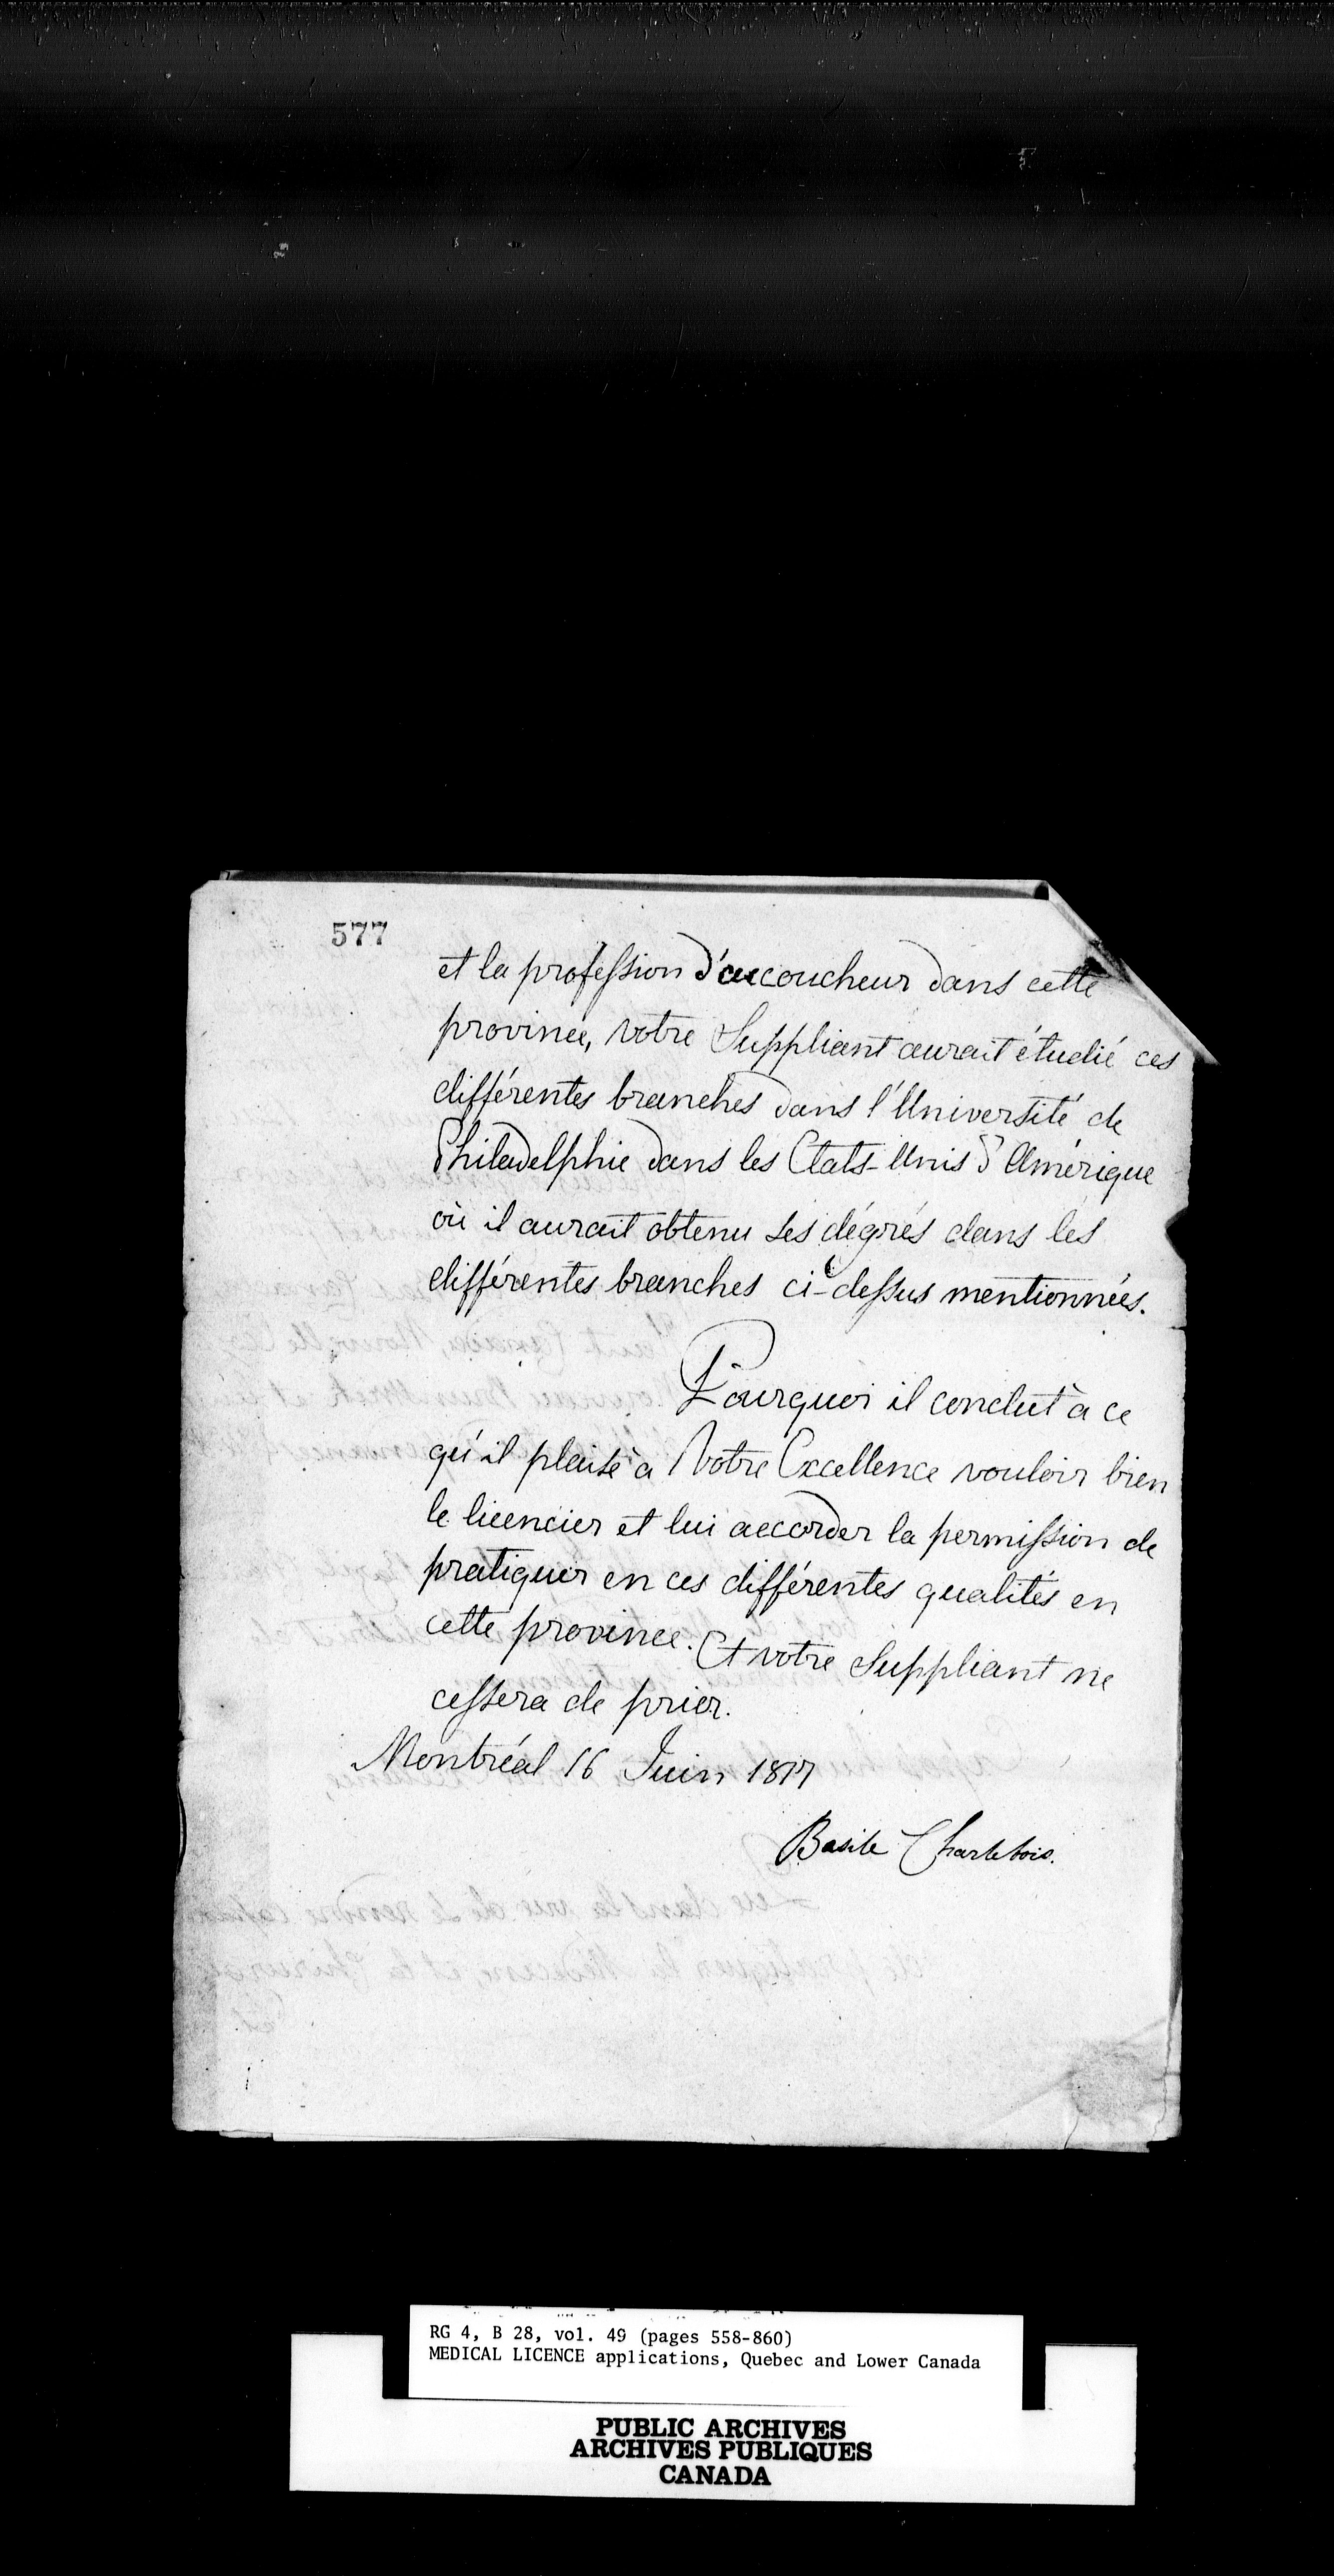 577
et la profession d'acoucheur dans cette
province, votre Suppliant aurait étudié ces
différentes branches dans l'Université de
Philadelphie dans les Etats-Unis d'Amérique
où il aurait obtenu ses dégrés dans les
différentes branches ci-dessus mentionnées.
Pourquoi il conclut à ce
qu'il plaise à Votre Excellence vouloir bien
le licencier et lui accorder la permission de
pratiquer en ces différentes qualités en
cette province. Et votre Suppliant ne
cessera de prier.
Montréal 16 Juin 1817
Basile Charlebois.
RG 4, B 28, vol. 49 (pages 558-860)
MEDICAL LICENCE applications, Quebec and Lower Canada
PUBLIC ARCHIVES
ARCHIVES PUBLIQUES
CANADA